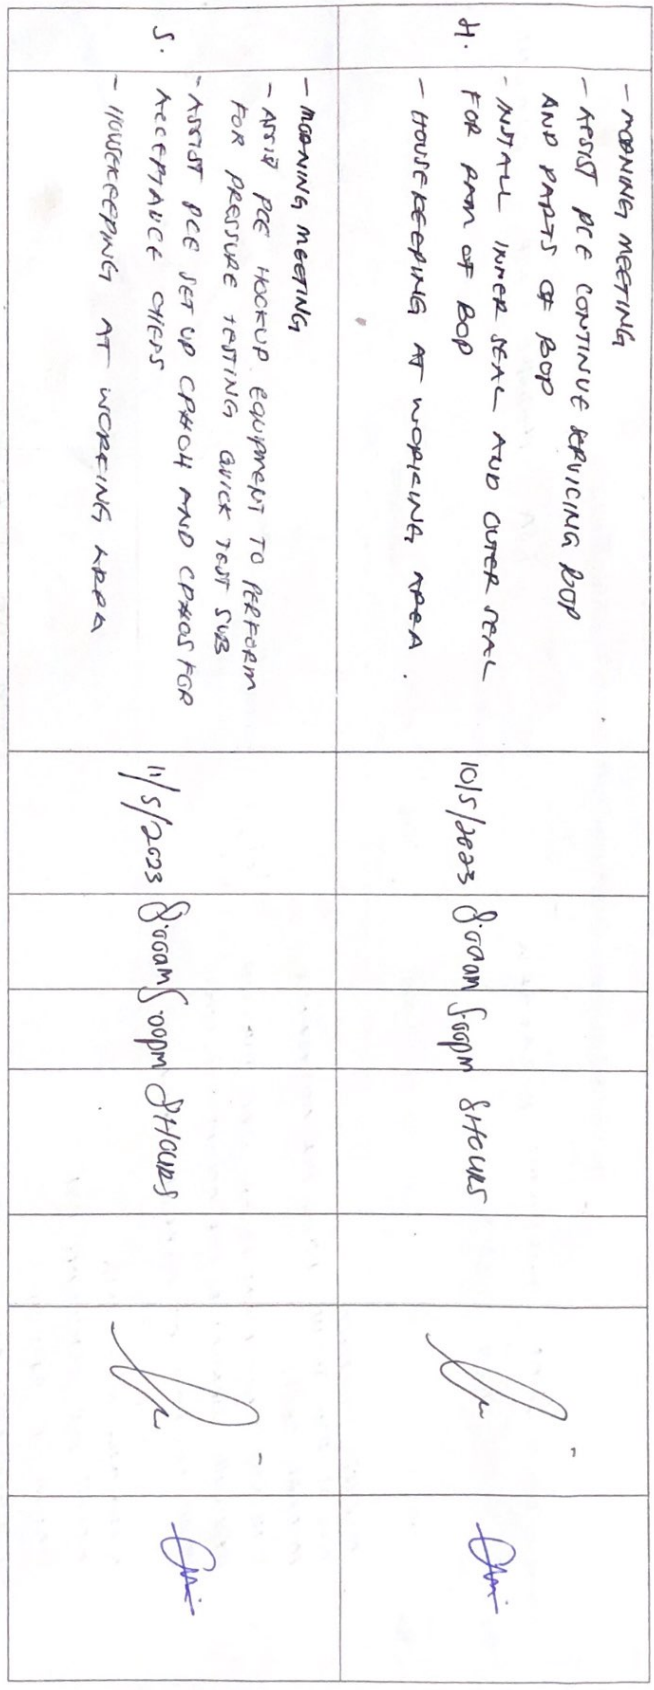 4.
- MORNING MEETING
- ASSIST PCE CONTINUE SERVICING BOP
AND PARTS OF BOP
- INSTALL INNER SEAL AND OUTER SEAL
FOR RAM OF BOP
- HOUSEKEEPING AT WORKING AREA.
10/5/2023
8:00am
5:00pm
8 HOURS
5.
- MORNING MEETING
- ASSIST PCE HOOKUP EQUIPMENT TO PERFORM
FOR PRESSURE TESTING QUICK TEST SUB
- ASSIST PCE SET UP AND FOR
ACCEPTANCE
- HOUSEKEEPING AT WORKING AREA
11/5/2023
8:00am
5:00pm
8 HOURS